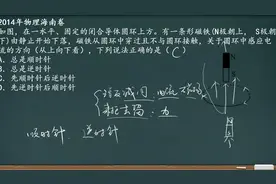 2014年物理海南卷
如图，在一水平、固定的闭合导体圆环上方，有一条形磁铁(N极朝上，S极朝
下)由静止开始下落，磁铁从圆环中穿过且不与圆环接触，关于圆环中感应电
流的方向(从上向下看)，下列说法正确的是 (C)
A．总是顺时针
B．总是逆时针
C．先顺时针后逆时针
D．先逆时针后顺时针
顺时针 逆时针